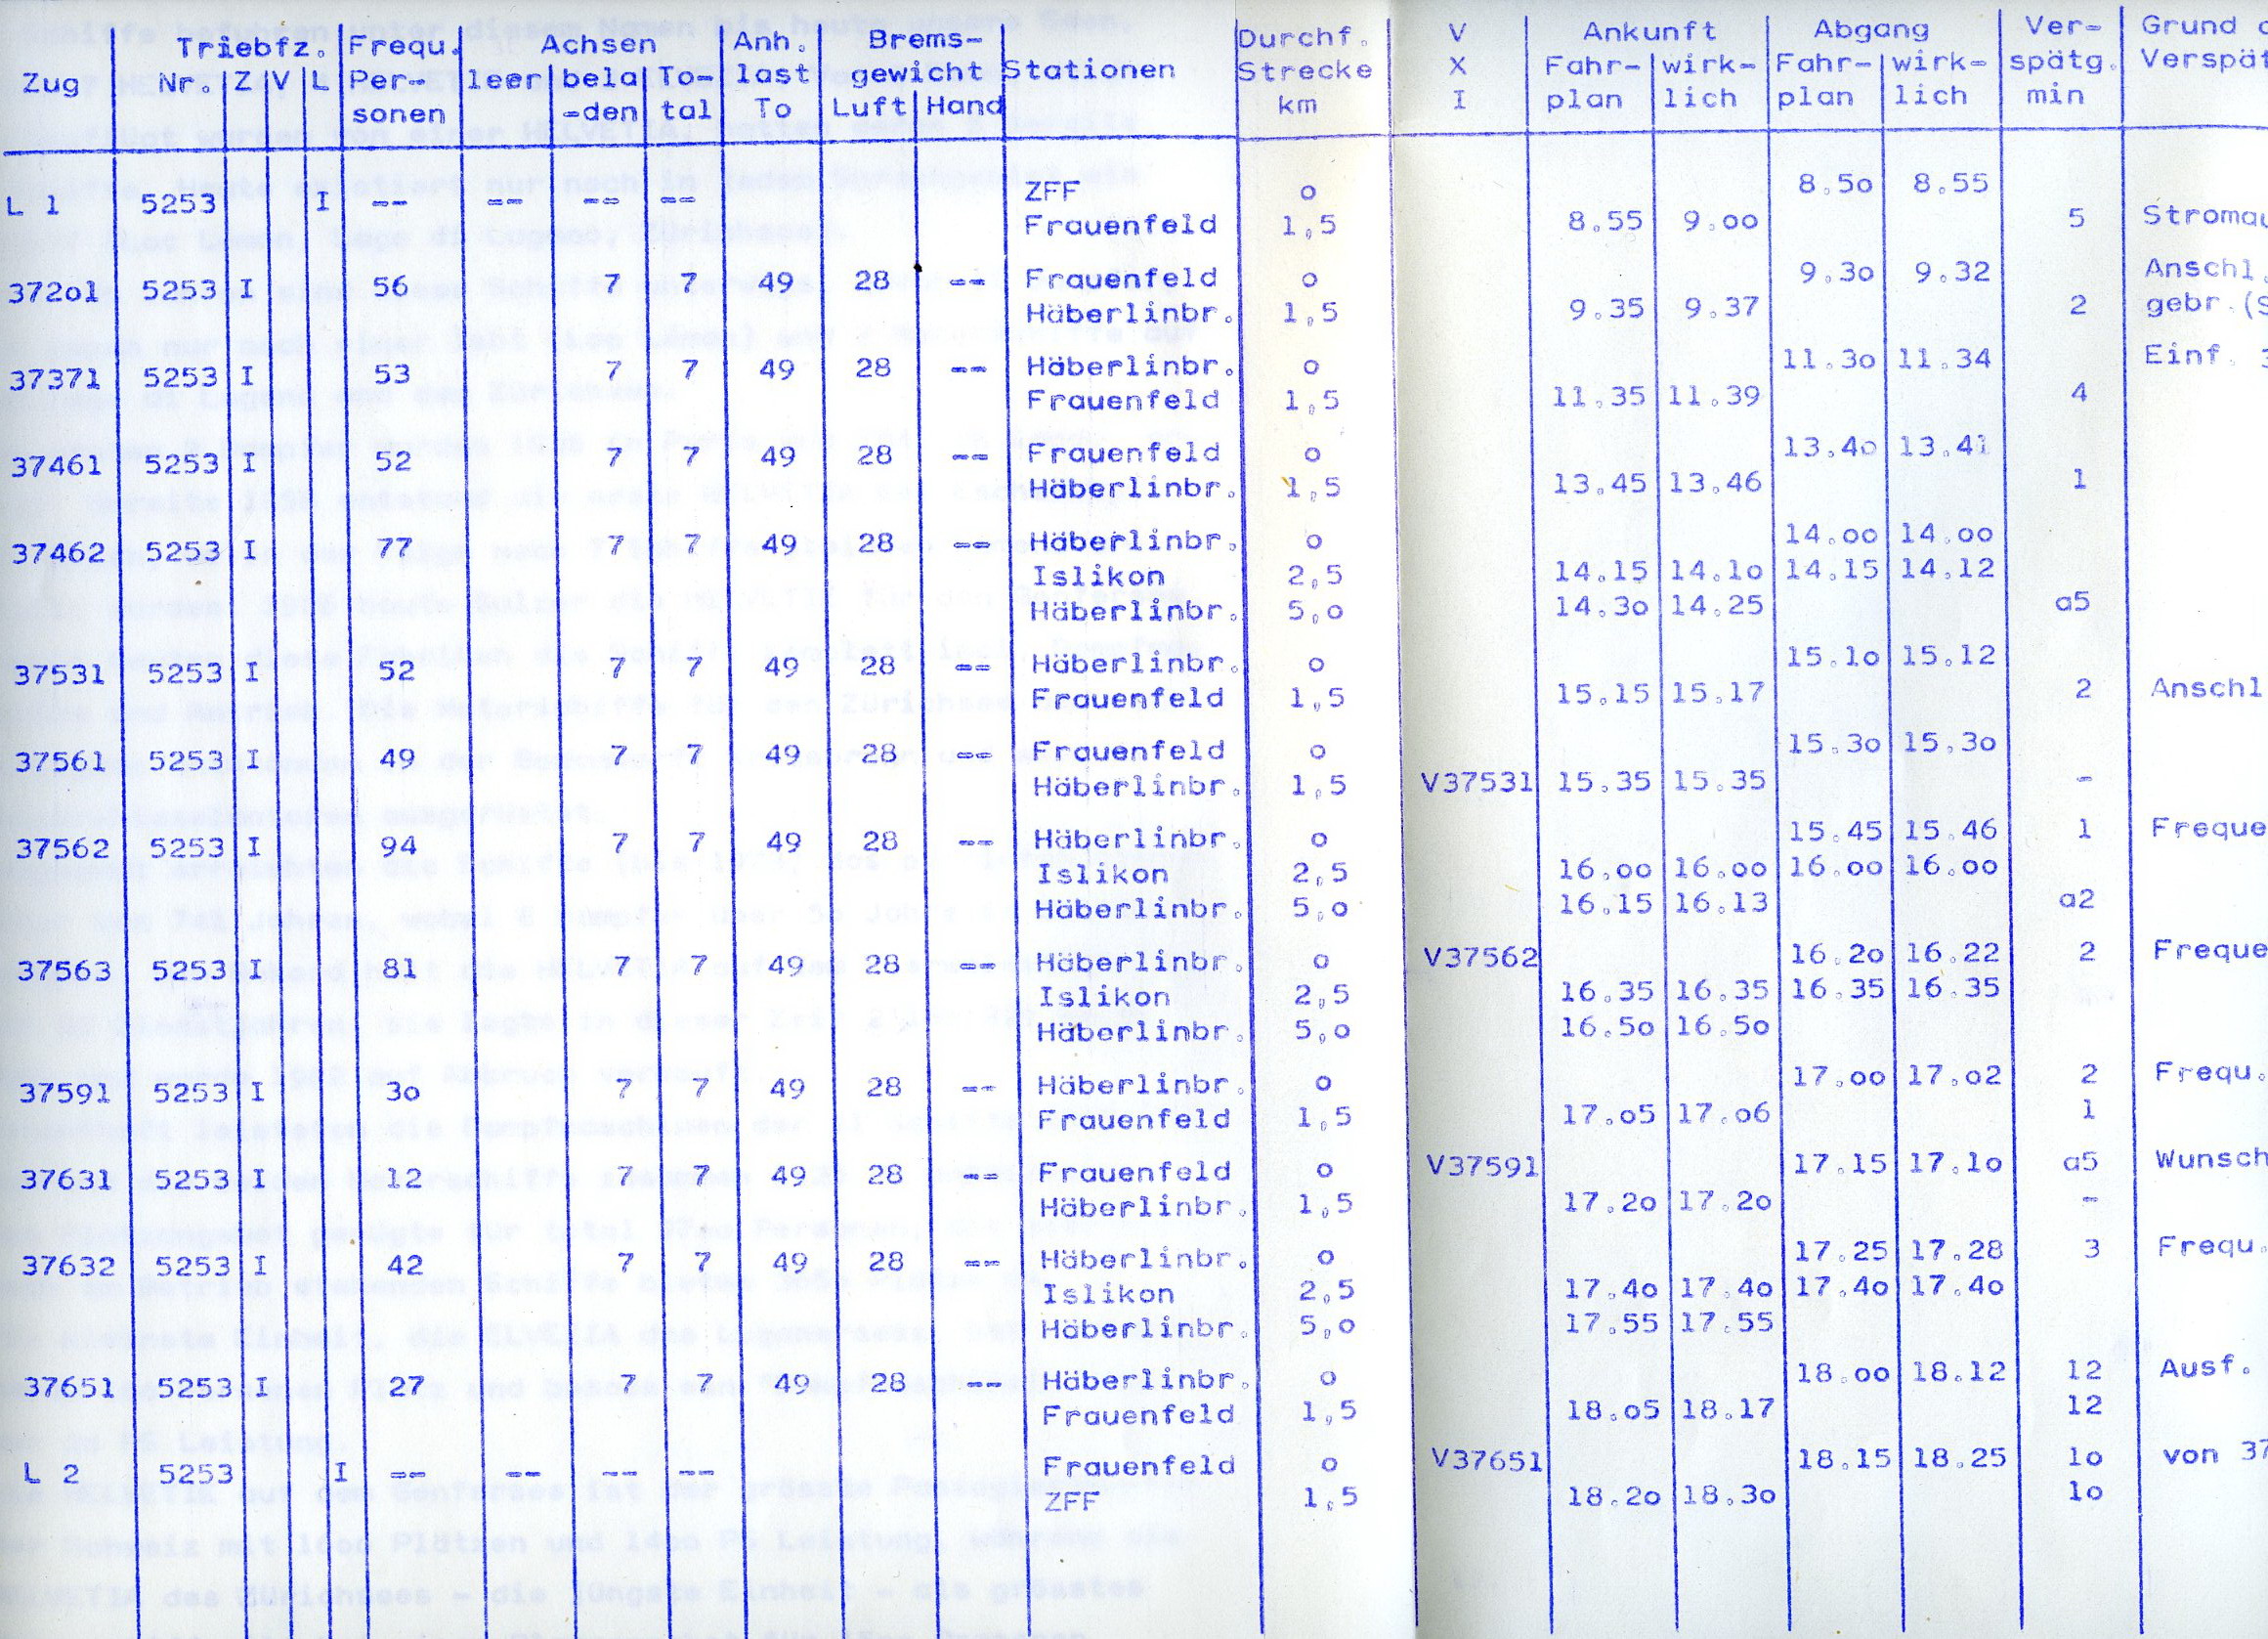 Triebfz. Frequ. Achsen Anh. Brems- Durchf. V Ankunft Abgang Ver- Grund
Zug Nr. Z V L Per- leer bela To- last gewicht Stationen Strecke X Fahr- wirk- Fahr- wirk- spätg. Verspät
sonen =den tal To Luft Hand km I plan lich plan lich min
L 1 5253 I -- -- -- -- ZFF o 8.5o 8.55
Frauenfeld 1,5 8.55 9.oo 5 Stromau
372o1 5253 I 56 7 7 49 28 -- Frauenfeld o 9.3o 9.32 Anschl.
Häberlinbr. 1,5 9.35 9.37 2 gebr.(S
37371 5253 I 53 7 7 49 28 -- Häberlinbr. o 11.3o 11.34 Einf. 3
Frauenfeld 1,5 11.35 11.39 4
37461 5253 I 52 7 7 49 28 -- Frauenfeld o 13.4o 13.41
Häberlinbr. 1,5 13.45 13.46 1
37462 5253 I 77 7 7 49 28 -- Häberlinbr. o 14.oo 14.oo
Islikon 2,5 14.15 14.1o 14.15 14.12
Häberlinbr. 5,o 14.3o 14.25 a5
37531 5253 I 52 7 7 49 28 -- Häberlinbr. o 15.1o 15.12
Frauenfeld 1,5 15.15 15.17 2 Anschl
37561 5253 I 49 7 7 49 28 -- Frauenfeld o 15.3o 15.3o
Häberlinbr. 1,5 V37531 15.35 15.35 -
37562 5253 I 94 7 7 49 28 -- Häberlinbr. o 15.45 15.46 1 Freque
Islikon 2,5 16.oo 16.oo 16.oo 16.oo
Häberlinbr. 5,o 16.15 16.13 a2
37563 5253 I 81 7 7 49 28 -- Häberlinbr. o V37562 16.2o 16.22 2 Freque
Islikon 2,5 16.35 16.35 16.35 16.35
Häberlinbr. 5,o 16.5o 16.5o
37591 5253 I 3o 7 7 49 28 -- Häberlinbr. o 17.oo 17.o2 2 Frequ.
Frauenfeld 1,5 17.o5 17.o6 1
37631 5253 I 12 7 7 49 28 -- Frauenfeld o V37591 17.15 17.1o a5 Wunsch
Häberlinbr. 1,5 17.2o 17.2o -
37632 5253 I 42 7 7 49 28 -- Häberlinbr. o 17.25 17.28 3 Frequ.
Islikon 2,5 17.4o 17.4o 17.4o 17.4o
Häberlinbr. 5,o 17.55 17.55
37651 5253 I 27 7 7 49 28 -- Häberlinbr. o 18.oo 18.12 12 Ausf.
Frauenfeld 1,5 18.o5 18.17 12
L 2 5253 I -- -- -- -- Frauenfeld o V37651 18.15 18.25 1o von 37
ZFF 1,5 18.2o 18.3o 1o